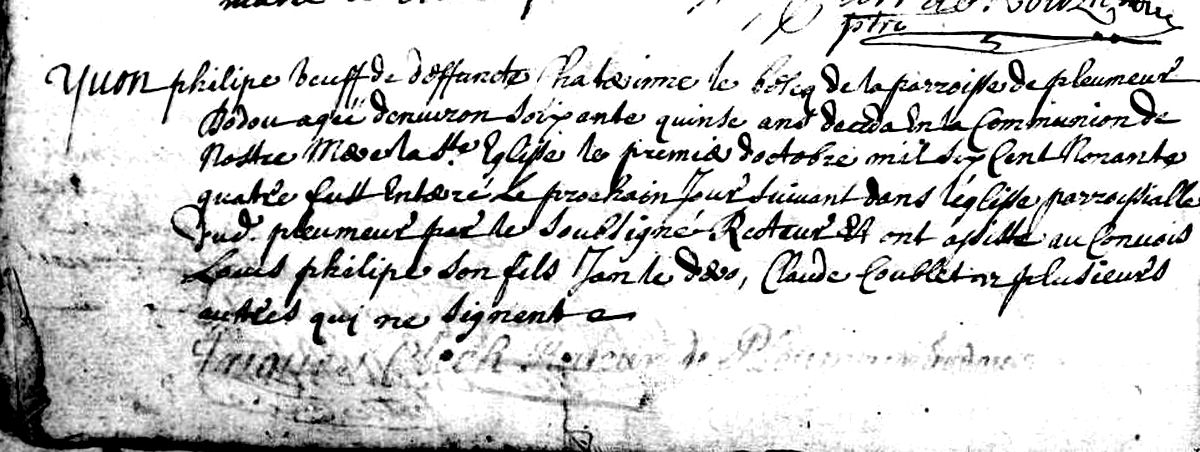 ptre
Yuon philipe veuff de deffuncte Chaterinne le bozeq de la parroisse de pleumeur
Bodou ageé denuiron soixante quinse ans deceda En la Communion de
Nostre Mere la Ste Eglisse le premie doctobre mil six Cent Nonante
quatre fust Enteré Le prochain Jour suiuant dans léglisse parroissialle
dud. pleumeur par le soubsigné Recteur Et ont assisté au Conuois
Louis philipe son fils Jan le deo, Claude Coublet & plusieurs
autres qui ne signent